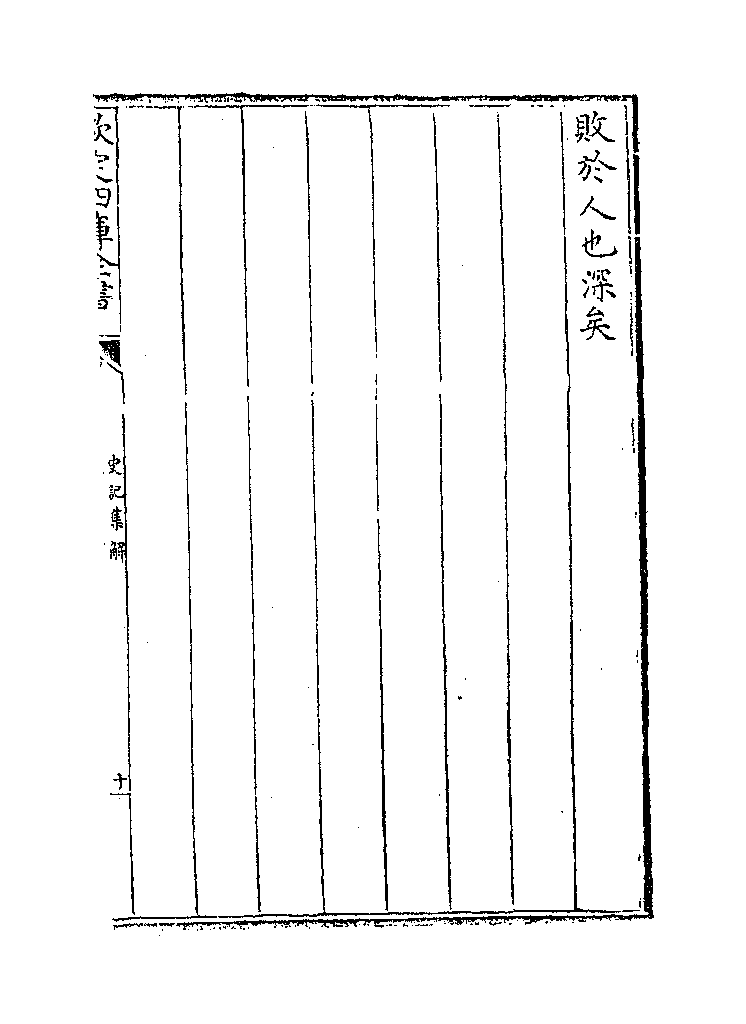 敗於人也深矣
欽定四庫全書
史記集解
十